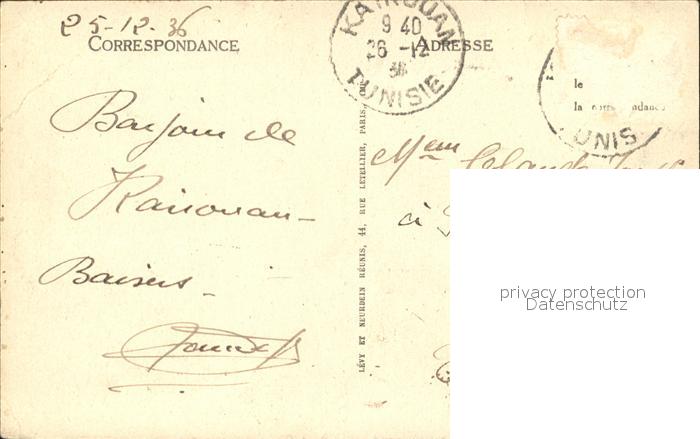 25-12-36
CORRESPONDANCE
Bonjour de
Kairouan-
Baisers-
KAIROUAN
9 40
26 -12
36
TUNISIE
ADRESSE
le
la correspondance
TUNIS
LÉVY ET NEURDEIN RÉUNIS, 44, RUE LETELLIER, PARIS
à
privacy protection
Datenschutz